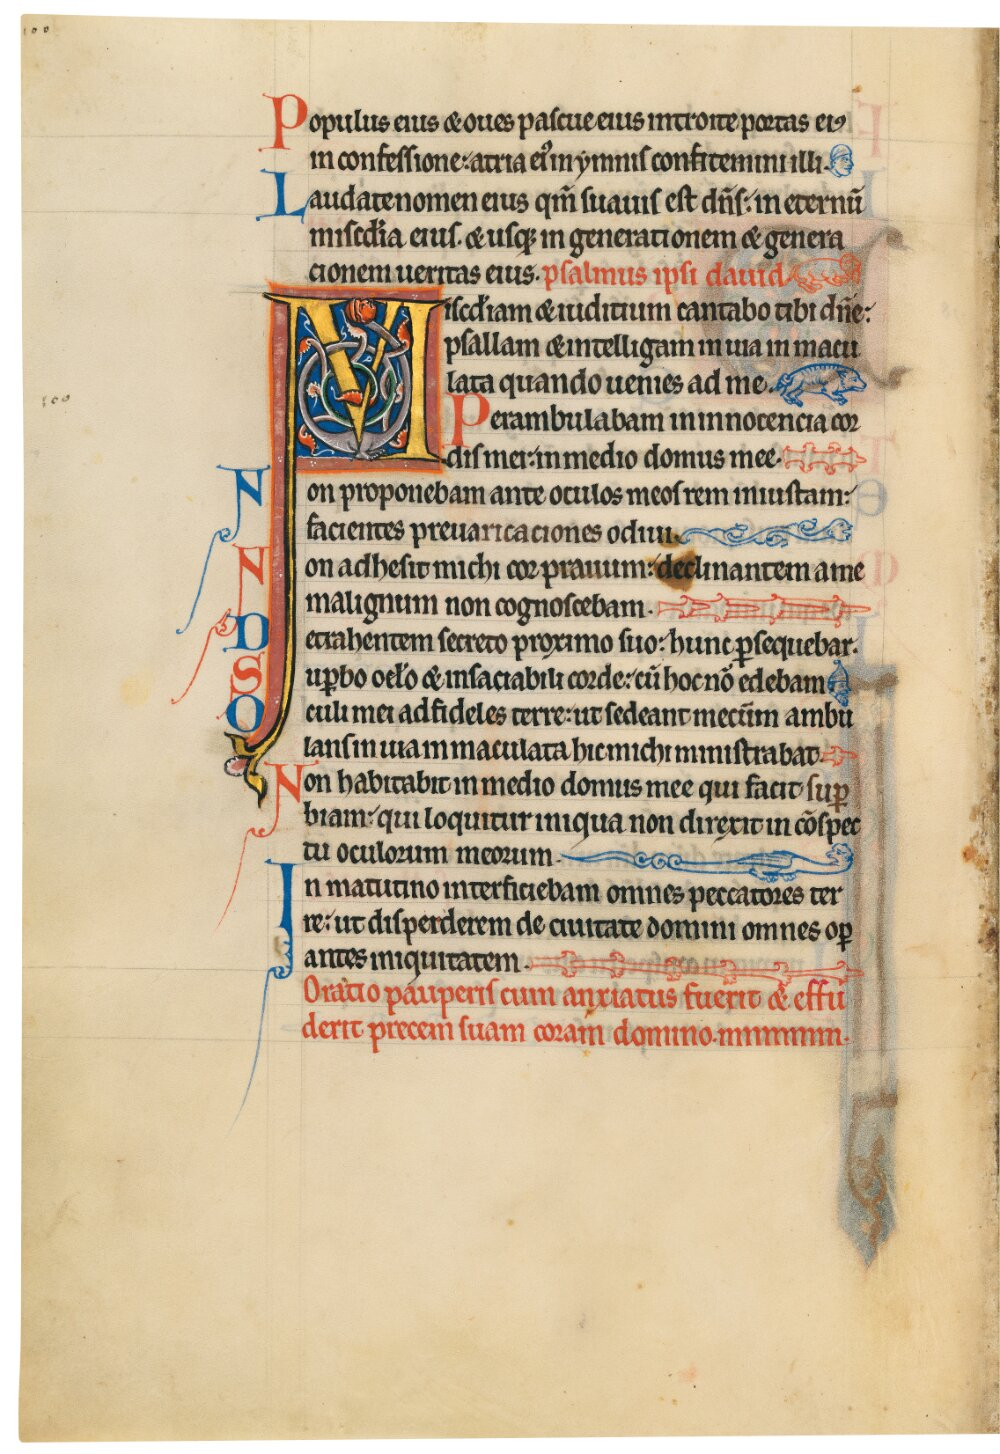 100
Populus eius & oues pascue eius introite portas eiꝰ
in confessione: atria ei᷒ in ymnis confitemini illi.
Laudate nomen eius qm̃ suauis est dñs: in eternũ
misc̄dia eius. & usq; in generationem & genera
cionem ueritas eius. psalmus ipsi dauid
Misc̄diam & iuditium cantabo tibi dñe:
psallam & intelligam in uia in macu
lata quando uenies ad me.
100
Perambulabam in innocencia cor
dis mei: in medio domus mee.
Non proponebam ante oculos meos rem iniustam:
facientes preuaricaciones odiui.
Non adhesit michi cor prauum: declinantem a me
malignum non cognoscebam.
Detrahentem secreto proximo suo: hunc ꝑsequebar.
Suꝑbo oc̄lo & insaciabili corde: cũ hoc nõ edebam
Oculi mei ad fideles terre: ut sedeant mecũm ambu
lans in uia inmaculata hic michi ministrabat.
Non habitabit in medio domus mee qui facit suꝑ
biam: qui loquitur iniqua non direxit in cõspec
tu oculorum meorum.
In matutino interficiebam omnes peccatores ter
re: ut disperderem de ciuitate domini omnes oꝑ
antes iniquitatem.
Oratio pauperis cum anxiatus fuerit & effu
derit precem suam coram domino.